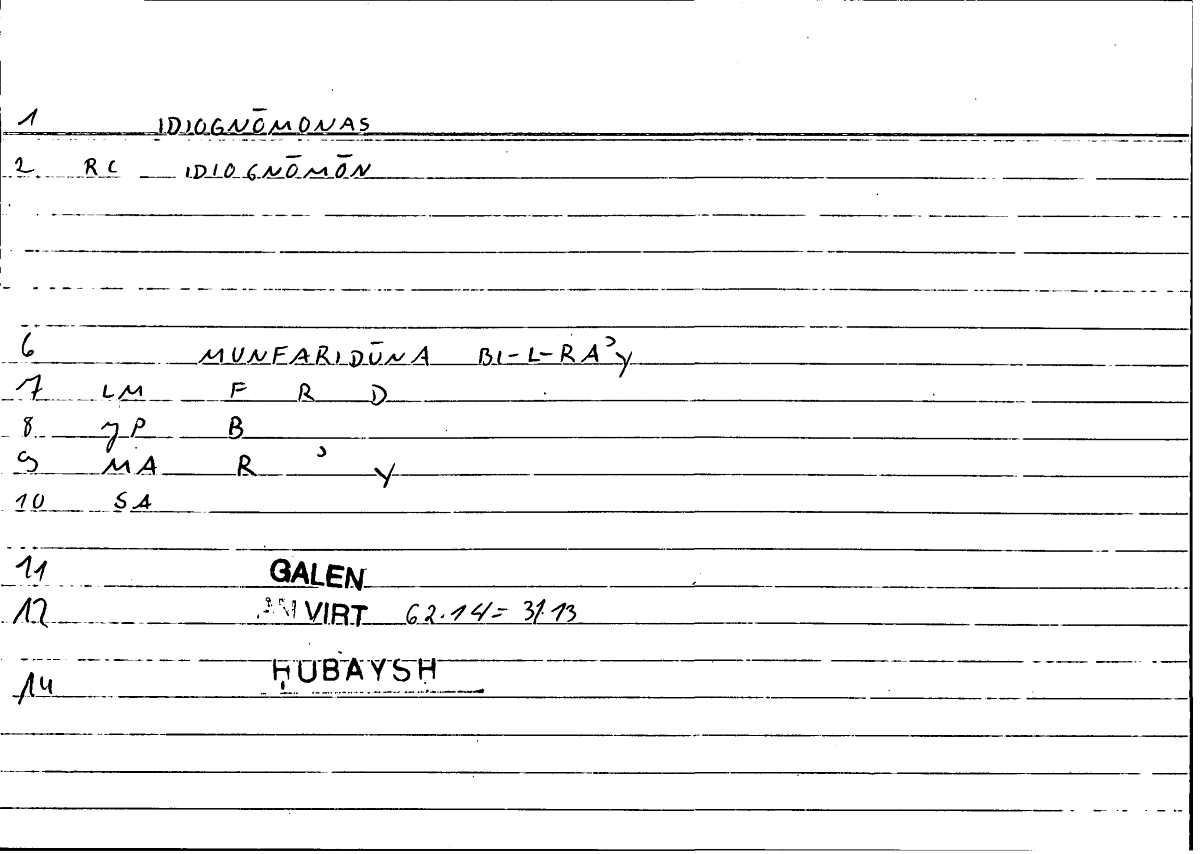 1 IDIOGNŌMONAS
2 RC IDIOGNŌMŌN
6 MUNFARIDŪNA BI-L-RAʾY
7 LM F R D
8 P B
9 MA R ʾ Y
10 SA
11 GALEN
12 AN VIRT 62.14 = 31.13
14 ḤUBAYSH